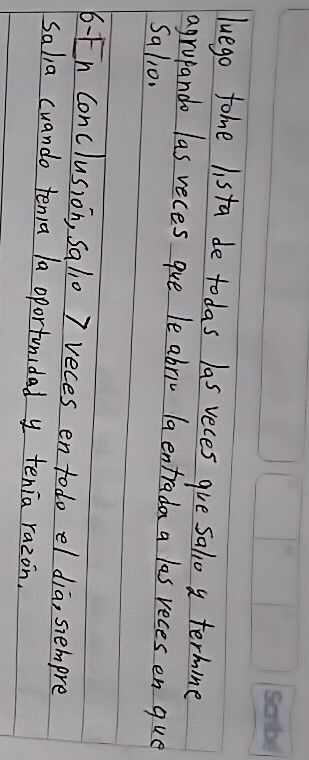 luego tome lista de todas las veces que salio y termine
agrupando las veces que le abrió la entrada a las veces en que
salio.
6-En conclusión, salio 7 veces en todo el día, siempre
salia cuando tenia la oportunidad y tenía razón.
Scribe